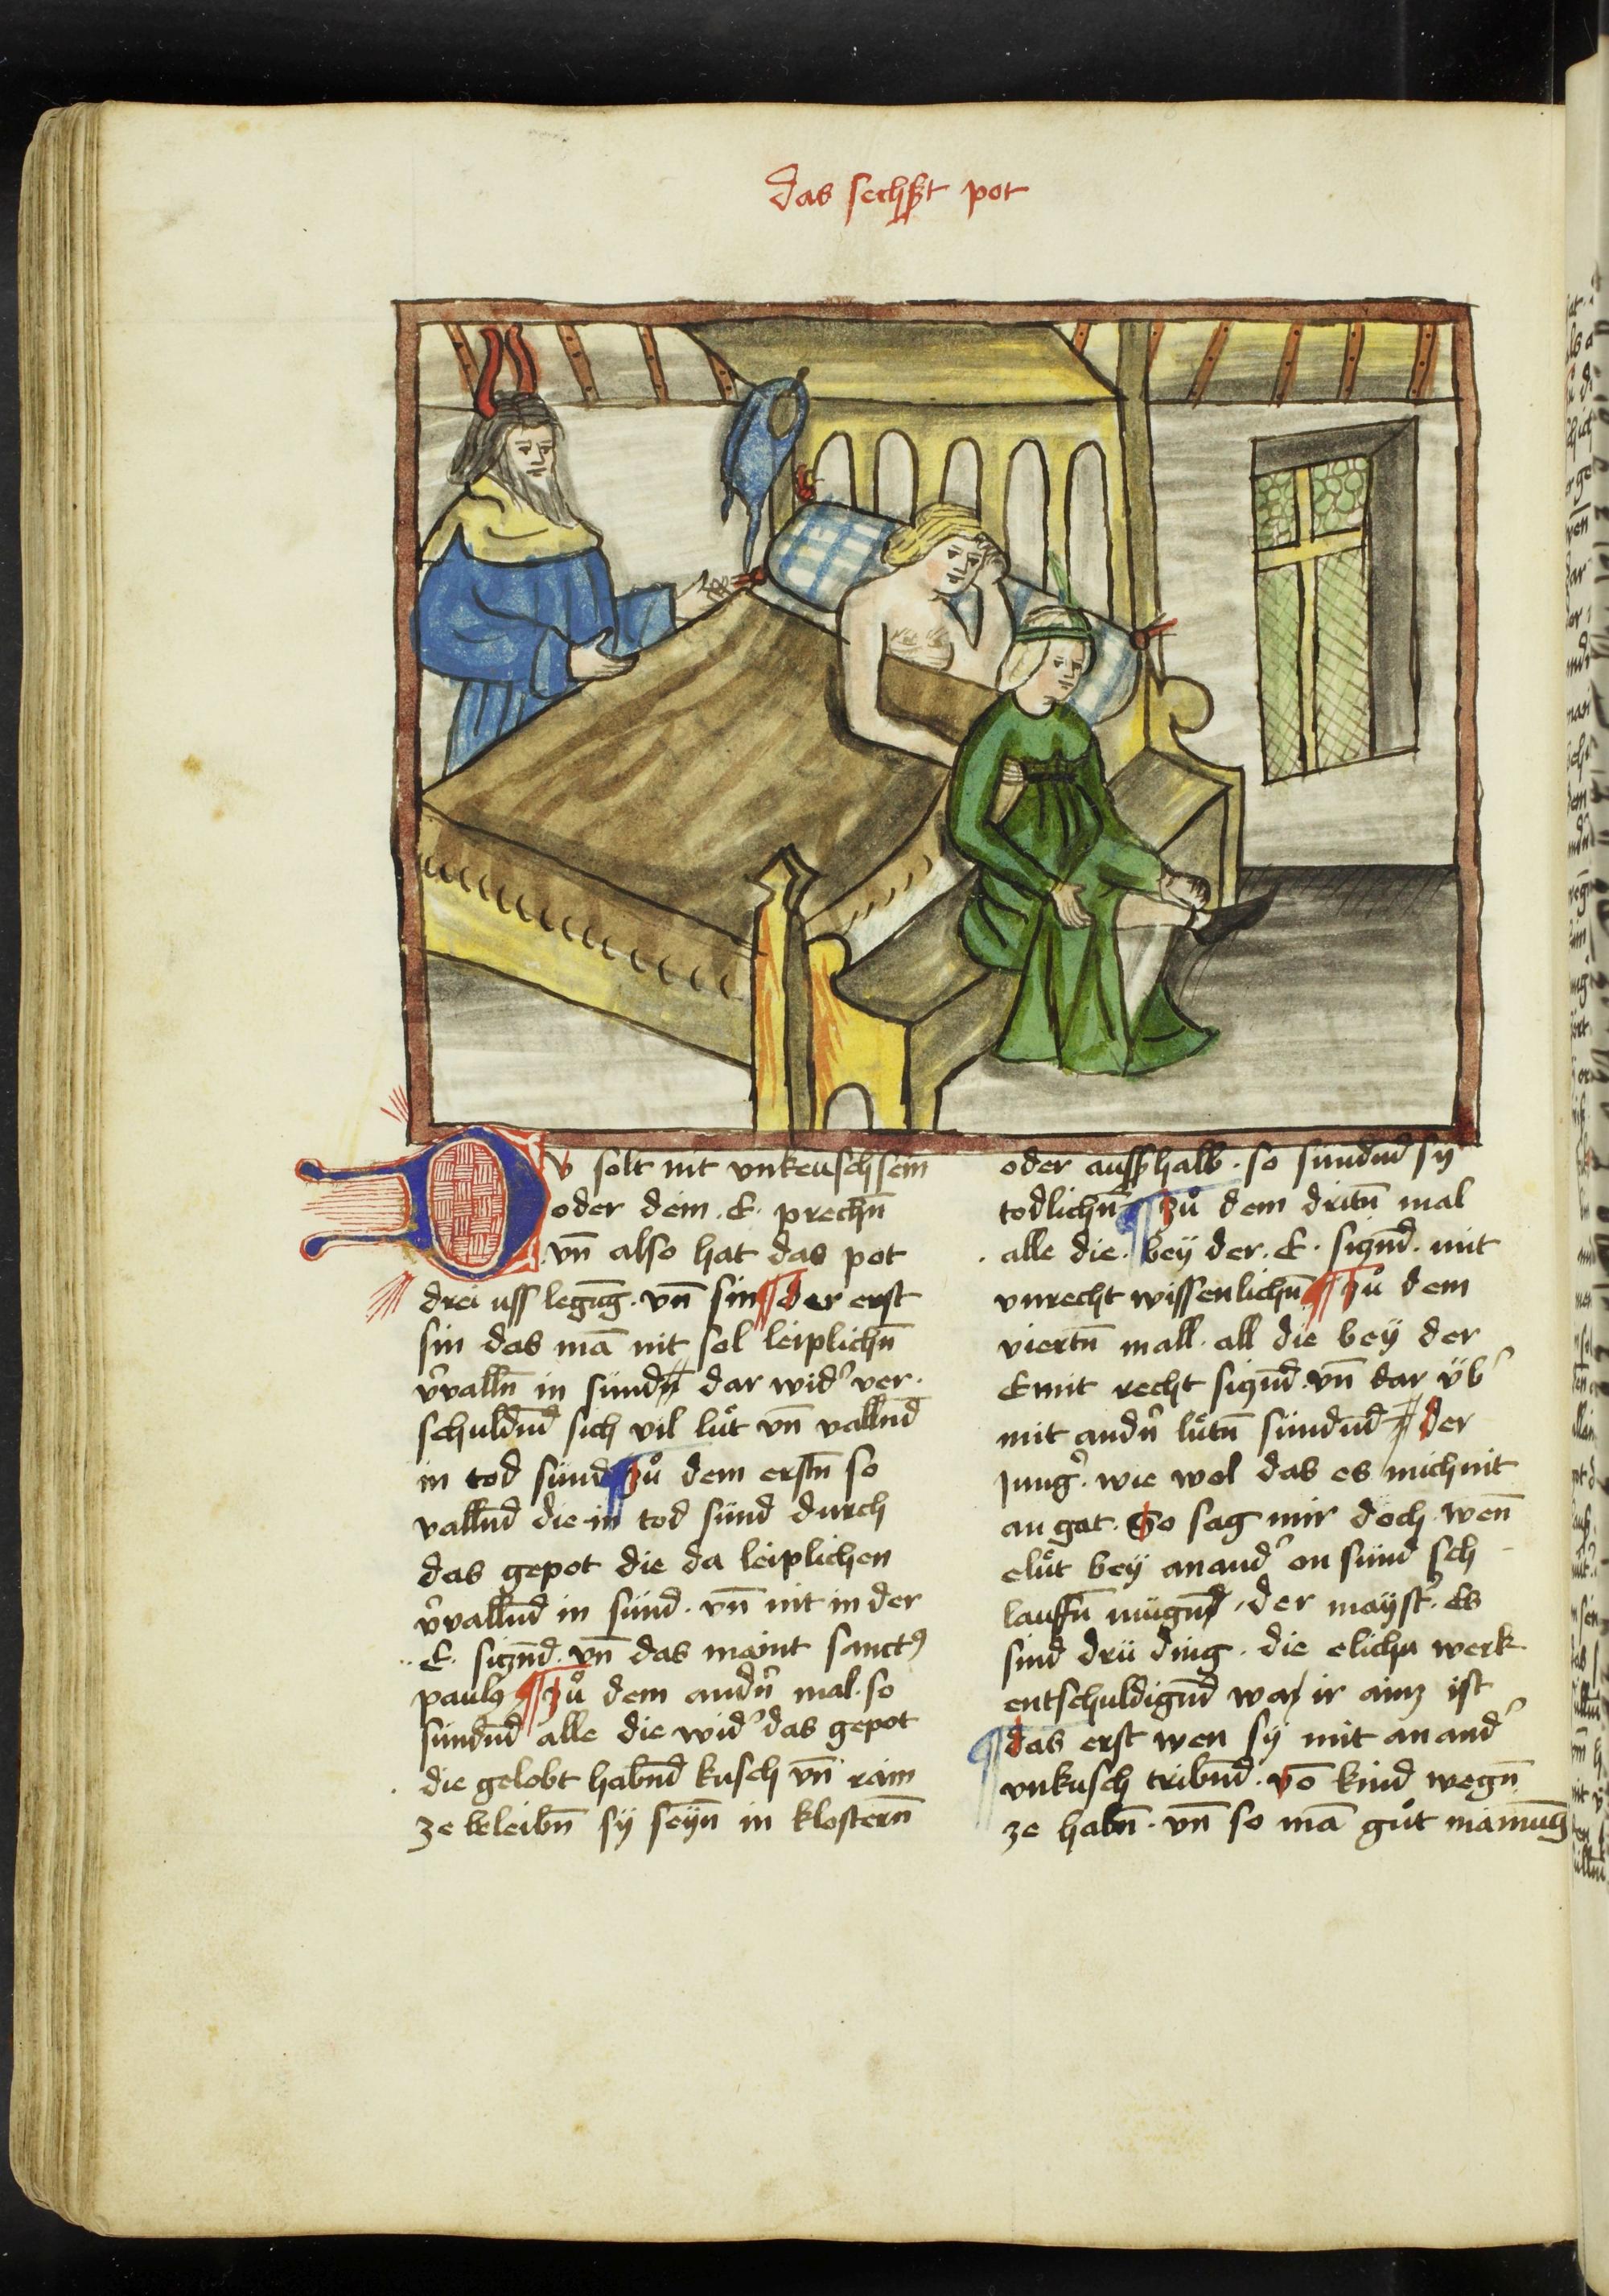 das sechsst pot
Dv solt nit vnkeusch sein
oder dein . E . prechn̄
vn̄ also hat das pot
drei uss legūg . vn̄ sin der erst
sin das mā nit sol leiplichn̄
v̉valln̄ in sündn̄ dar wid̉ ver
schuldnd̄ sich vil lüt vn̄ vallnd̄
in tod sünd zů dem erstn̄ so
vallnd̄ die in tod sünd durch
das gepot die da leiplichen
v̉vallnd̄ in sünd . vn̄ nit in der
E . siznd̄ . vn̄ das maint sanctꝰ
paulꝰ zů dem andn̉ mal . so
sündnd̄ alle die wid̉ das gepot
die gelobt habnd̄ kusch vn̄ rain
ze bleibn̄ sy seyn̄ in klostern̄
oder aussþhalb . so sündnd̄ sy
todlichn̄ zů dem dritn̄ mal
alle die . bey der . E . siznd̄ . mit
vnrecht wissenlichn̄ zů dem
viertn̄ mall . all die bey der
E mit recht siznd̄ . vn̄ dar üb̉
mit andn̉ lütn̄ sündnd̄ der
Jung̉ . wie wol das es mich nit
an gat . So sag mir doch . wen̄
elüt bey anand̉ on sünd sch
lauffn̄ mügnd̄ . der mayst̉ . Es
sind drü ding . die elichn werk
entschuldignd̄ wa ir ainz ist
das erst wen sy mit anand̉
vnkusch tribnd̄ . vō kind wegn̄
ze habn̄ . vn̄ so mā gůt mainung